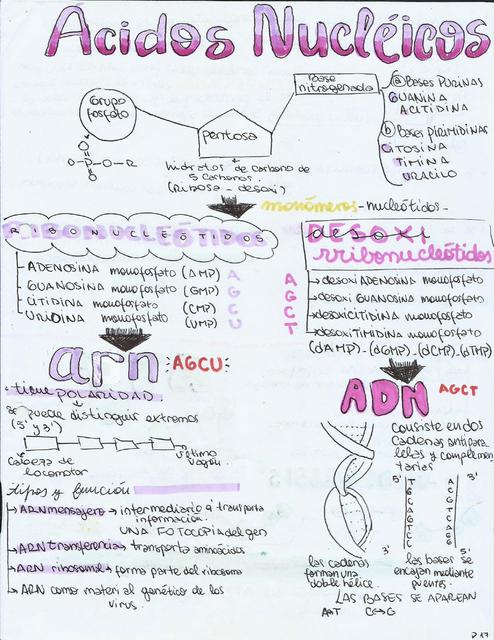 Ácidos Nucléicos
Grupo fosfato
pentosa
Base nitrogenada
ⓐ Bases PURINAS
GUANINA
ACITIDINA
ⓑ Bases PIRIMIDINAS
CITOSINA
TIMINA
URACILO
O
O-P-O-R
O
hidratos de carbono de
5 carbonos.
(Ribosa - desoxi)
monómeros - nucleótidos.
RIBONUCLEÓTIDOS
ADENOSINA monofosfato (AMP) A
GUANOSINA monofosfato (GMP) G
CITIDINA monofosfato (CMP) C
URIDINA monofosfato (UMP) U
DESOXI
rribonucleótidos
A desoxi ADENOSINA monofosfato
G desoxi GUANOSINA monofosfato
C desoxi CITIDINA monofosfato
T desoxi TIMIDINA monofosfato
(dAMP)-(dGMP)-(dCMP)-(dTMP)
arn AGCU
tiene POLARIDAD
se puede distinguir extremos
(5' y 3')
cabeza de
locomotor
último
vagón.
tipos y función
ARN mensajero → intermediario transporta
información.
UNA FOTOCOPIA del gen
ARN transferencia → transporta aminoácidos
ARN ribosomal → forma parte del ribosoma
ARN como material genético de los
virus.
ADN AGCT
consiste en dos
cadenas antipara
lelas y complemen
tarias
5' 3'
3' 5'
las cadenas
forman una
doble hélice.
las bases se
encajan mediante
puentes.
LAS BASES SE APAREAN
A↔T C↔G